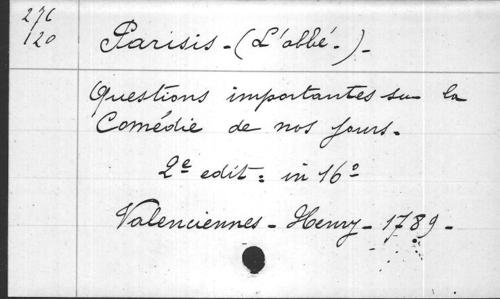 276
120
Parisis - (L'abbé -) -
Questions importantes sur la
Comédie de nos jours.
2e edit: in 16o
Valenciennes - Henry - 1789 -